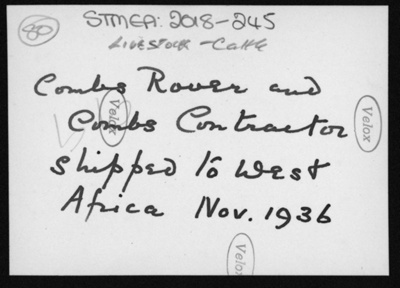 STMEA: 2018-245
LIVESTOCK - Cattle
Combs Rover and
Combs Contractor
shipped to West
Africa Nov. 1936
Velox
Velox
Velox